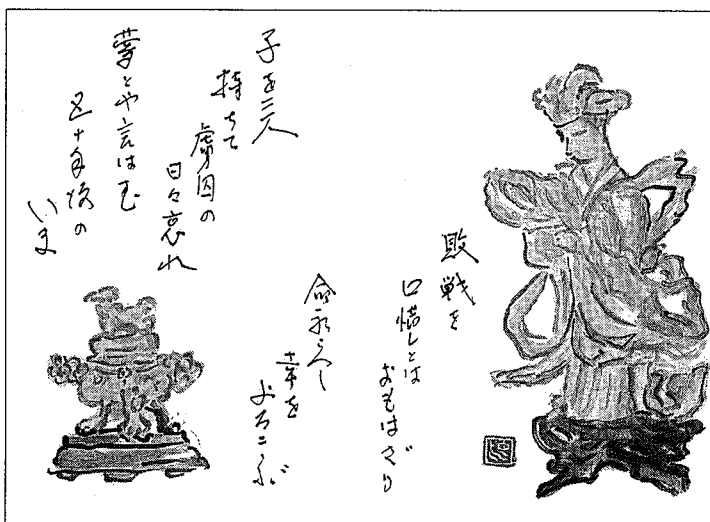 敗戦を
口惜しとは
おもはざり
命永らへし
幸を
よろこぶ
子を三人
持ちて
虜囚の
日々哀れ
夢とや言はむ
五十年後の
いま